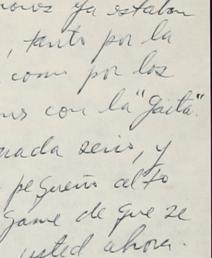 ya estaban
, tanto por la
como por los
con la "gaita".
nada serio, y
pequeño alto
game de que se
usted ahora.